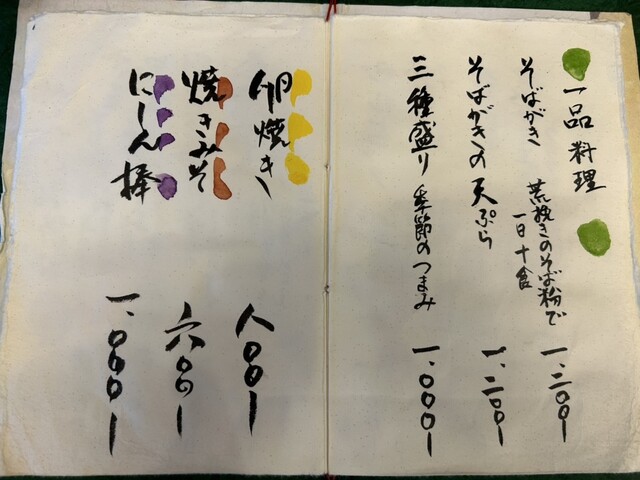 一品料理
そばがき 荒挽きのそば粉で 一日十食 一、二〇〇ー
そばがきの天ぷら 一、二〇〇ー
三種盛り 季節のつまみ 一、〇〇〇ー
卵焼き 八〇〇ー
焼きみそ 六〇〇ー
にしん棒 一、〇〇〇ー